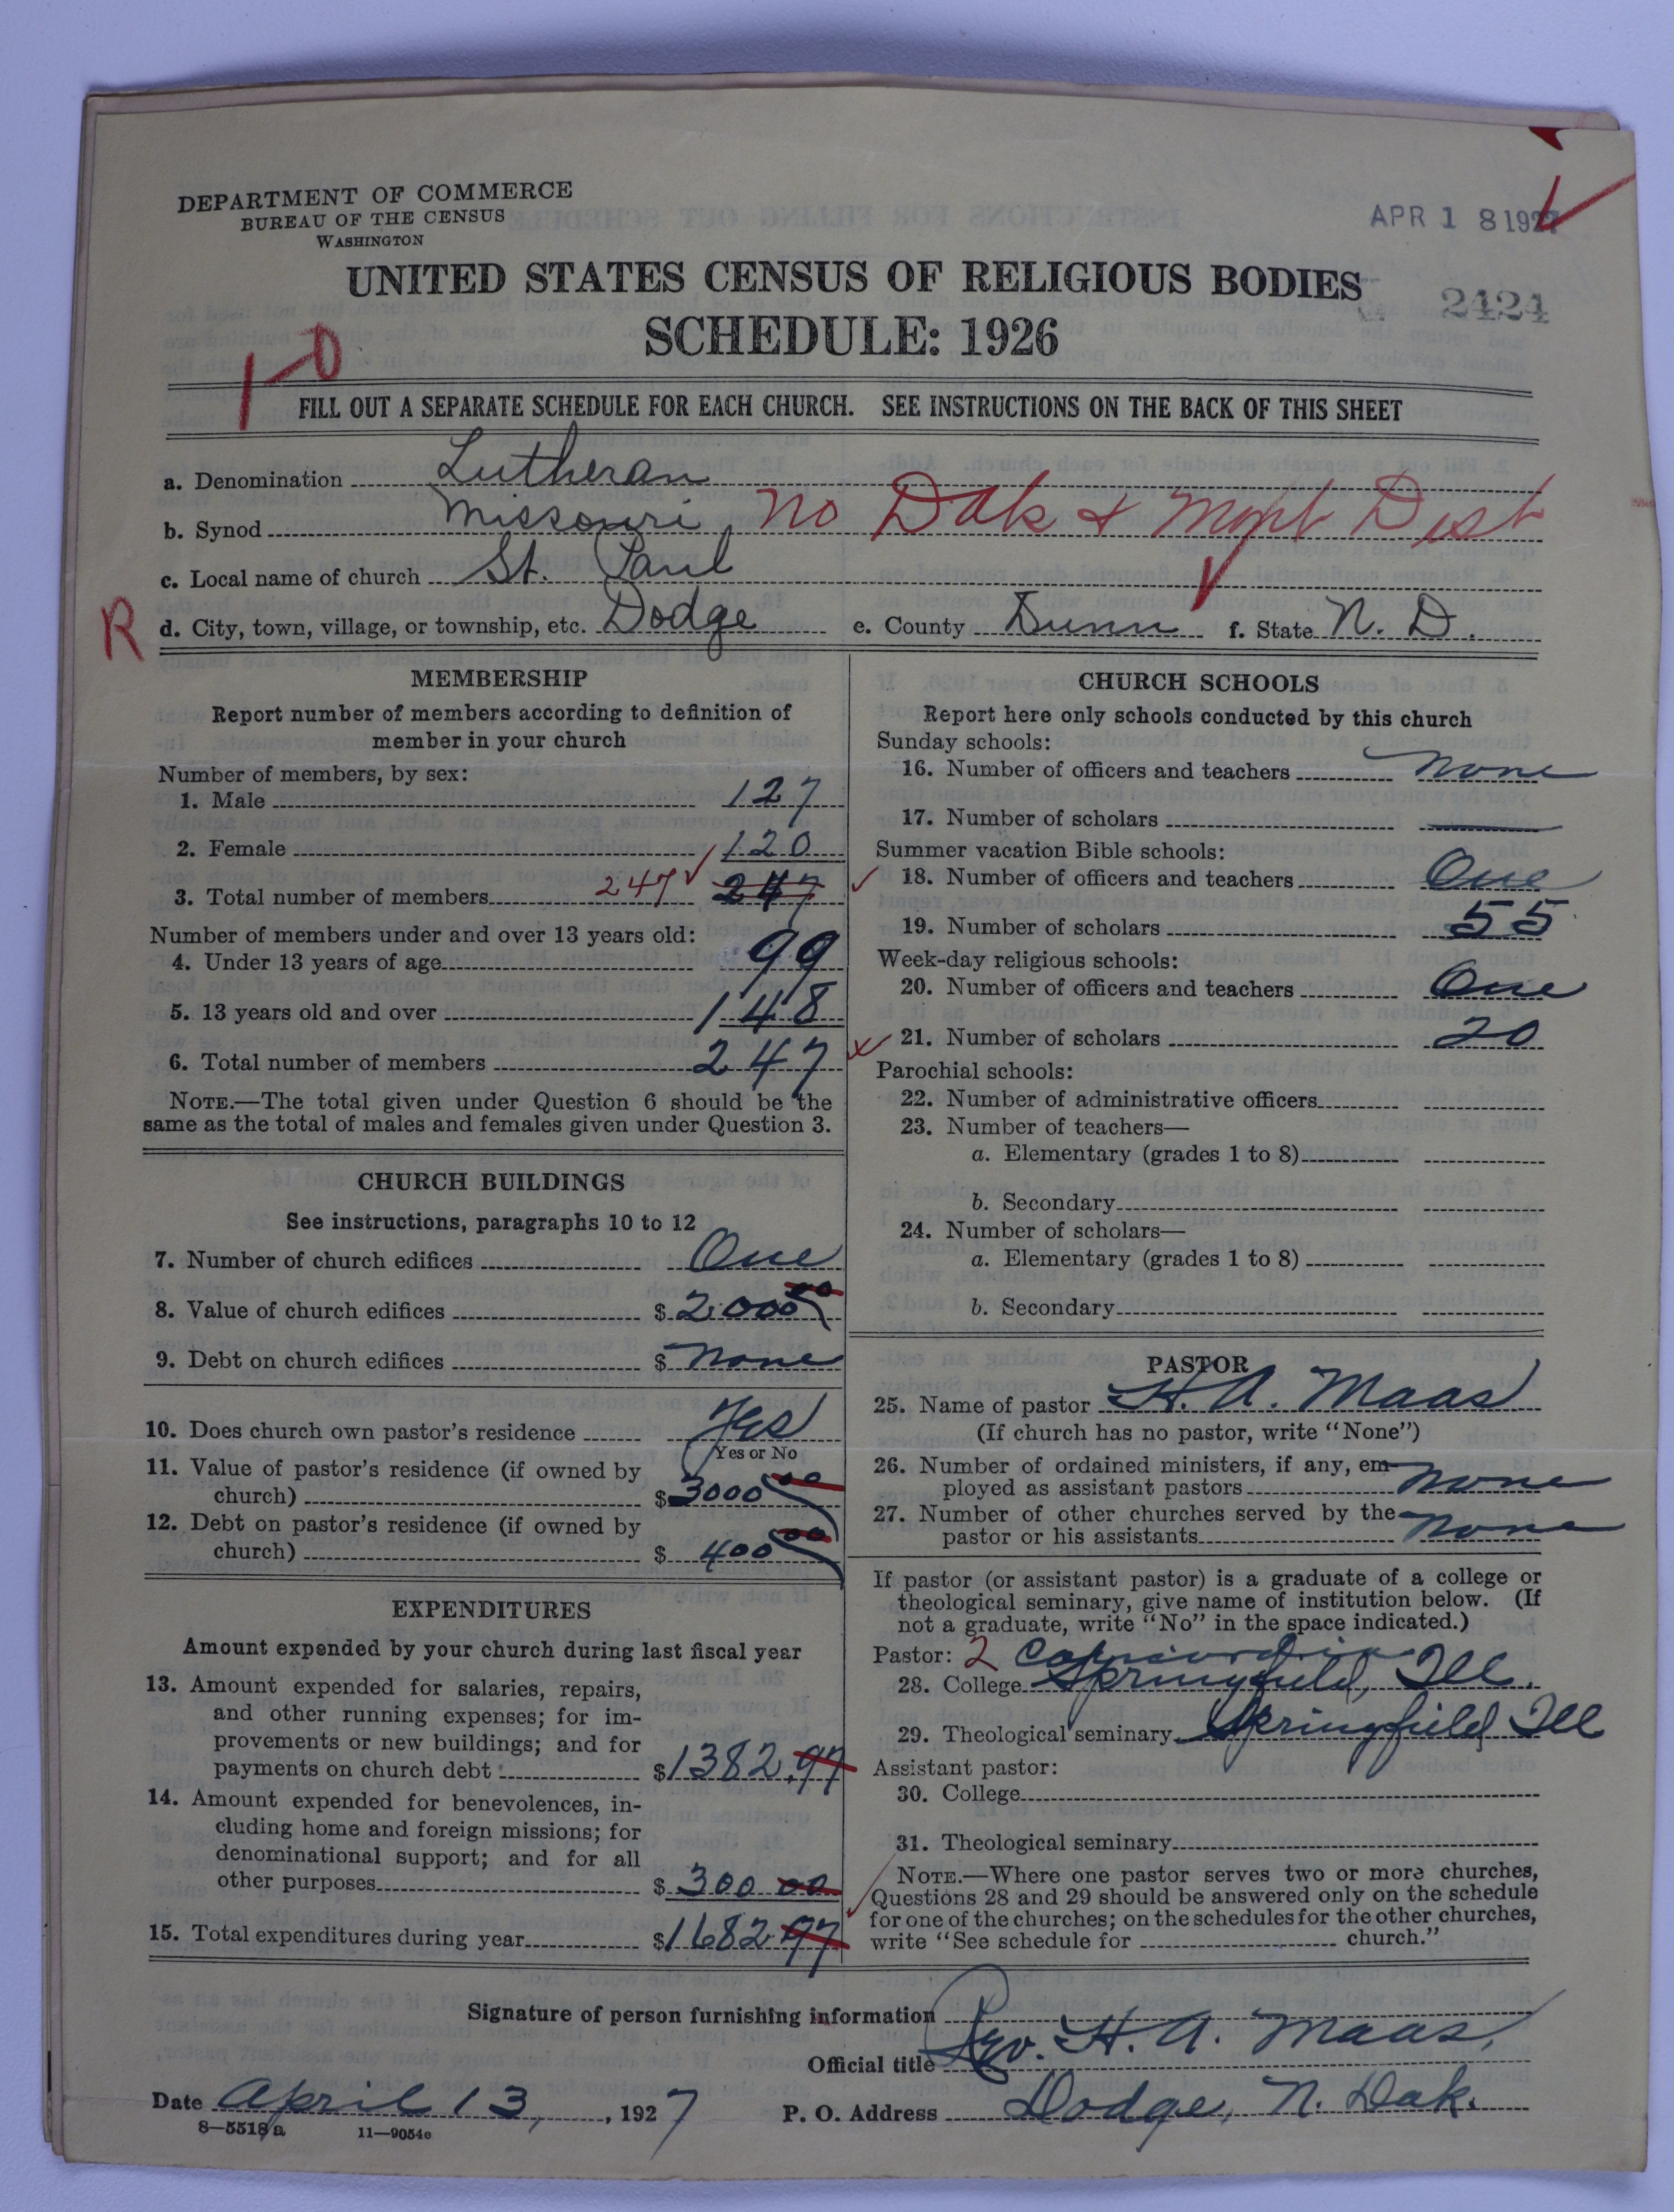 DEPARTMENT OF COMMERCE
BUREAU OF THE CENSUS
WASHINGTON
APR 18 1927
UNITED STATES CENSUS OF RELIGIOUS BODIES
2424
SCHEDULE: 1926
1-0
FILL OUT A SEPARATE SCHEDULE FOR EACH CHURCH. SEE INSTRUCTIONS ON THE BACK OF THIS SHEET
a. Denomination Lutheran
b. Synod Missouri, No Dak & Mont Dist
c. Local name of church St. Paul
R
d. City, town, village, or township, etc. Dodge e. County Dunn f. State N. D.
MEMBERSHIP
Report number of members according to definition of
member in your church
Number of members, by sex:
1. Male 127
2. Female 120
3. Total number of members 247 247
Number of members under and over 13 years old:
4. Under 13 years of age 99
5. 13 years old and over 148
6. Total number of members 247
NOTE.—The total given under Question 6 should be the
same as the total of males and females given under Question 3.
CHURCH BUILDINGS
See instructions, paragraphs 10 to 12
7. Number of church edifices One
8. Value of church edifices $ 2000 00
9. Debt on church edifices $ None
10. Does church own pastor's residence Yes
Yes or No
11. Value of pastor's residence (if owned by
church) $ 3000 00
12. Debt on pastor's residence (if owned by
church) $ 400 00
EXPENDITURES
Amount expended by your church during last fiscal year
13. Amount expended for salaries, repairs,
and other running expenses; for im-
provements or new buildings; and for
payments on church debt $ 1382.97
14. Amount expended for benevolences, in-
cluding home and foreign missions; for
denominational support; and for all
other purposes $ 300 00
15. Total expenditures during year $ 1682.97
CHURCH SCHOOLS
Report here only schools conducted by this church
Sunday schools:
16. Number of officers and teachers None
17. Number of scholars
Summer vacation Bible schools:
18. Number of officers and teachers One
19. Number of scholars 55
Week-day religious schools:
20. Number of officers and teachers One
21. Number of scholars 20
Parochial schools:
22. Number of administrative officers
23. Number of teachers—
a. Elementary (grades 1 to 8)
b. Secondary
24. Number of scholars—
a. Elementary (grades 1 to 8)
b. Secondary
PASTOR
25. Name of pastor H. A. Maas
(If church has no pastor, write "None")
26. Number of ordained ministers, if any, em-
ployed as assistant pastors None
27. Number of other churches served by the
pastor or his assistants None
If pastor (or assistant pastor) is a graduate of a college or
theological seminary, give name of institution below. (If
not a graduate, write "No" in the space indicated.)
Pastor: 2 Concordia
28. College Springfield, Ill.
29. Theological seminary Springfield, Ill
Assistant pastor:
30. College
31. Theological seminary
NOTE.—Where one pastor serves two or more churches,
Questions 28 and 29 should be answered only on the schedule
for one of the churches; on the schedules for the other churches,
write "See schedule for church."
Signature of person furnishing information
Official title Rev. H. A. Maas,
Date April 13, , 1927 P. O. Address Dodge, N. Dak.
8—5518a 11—9054c